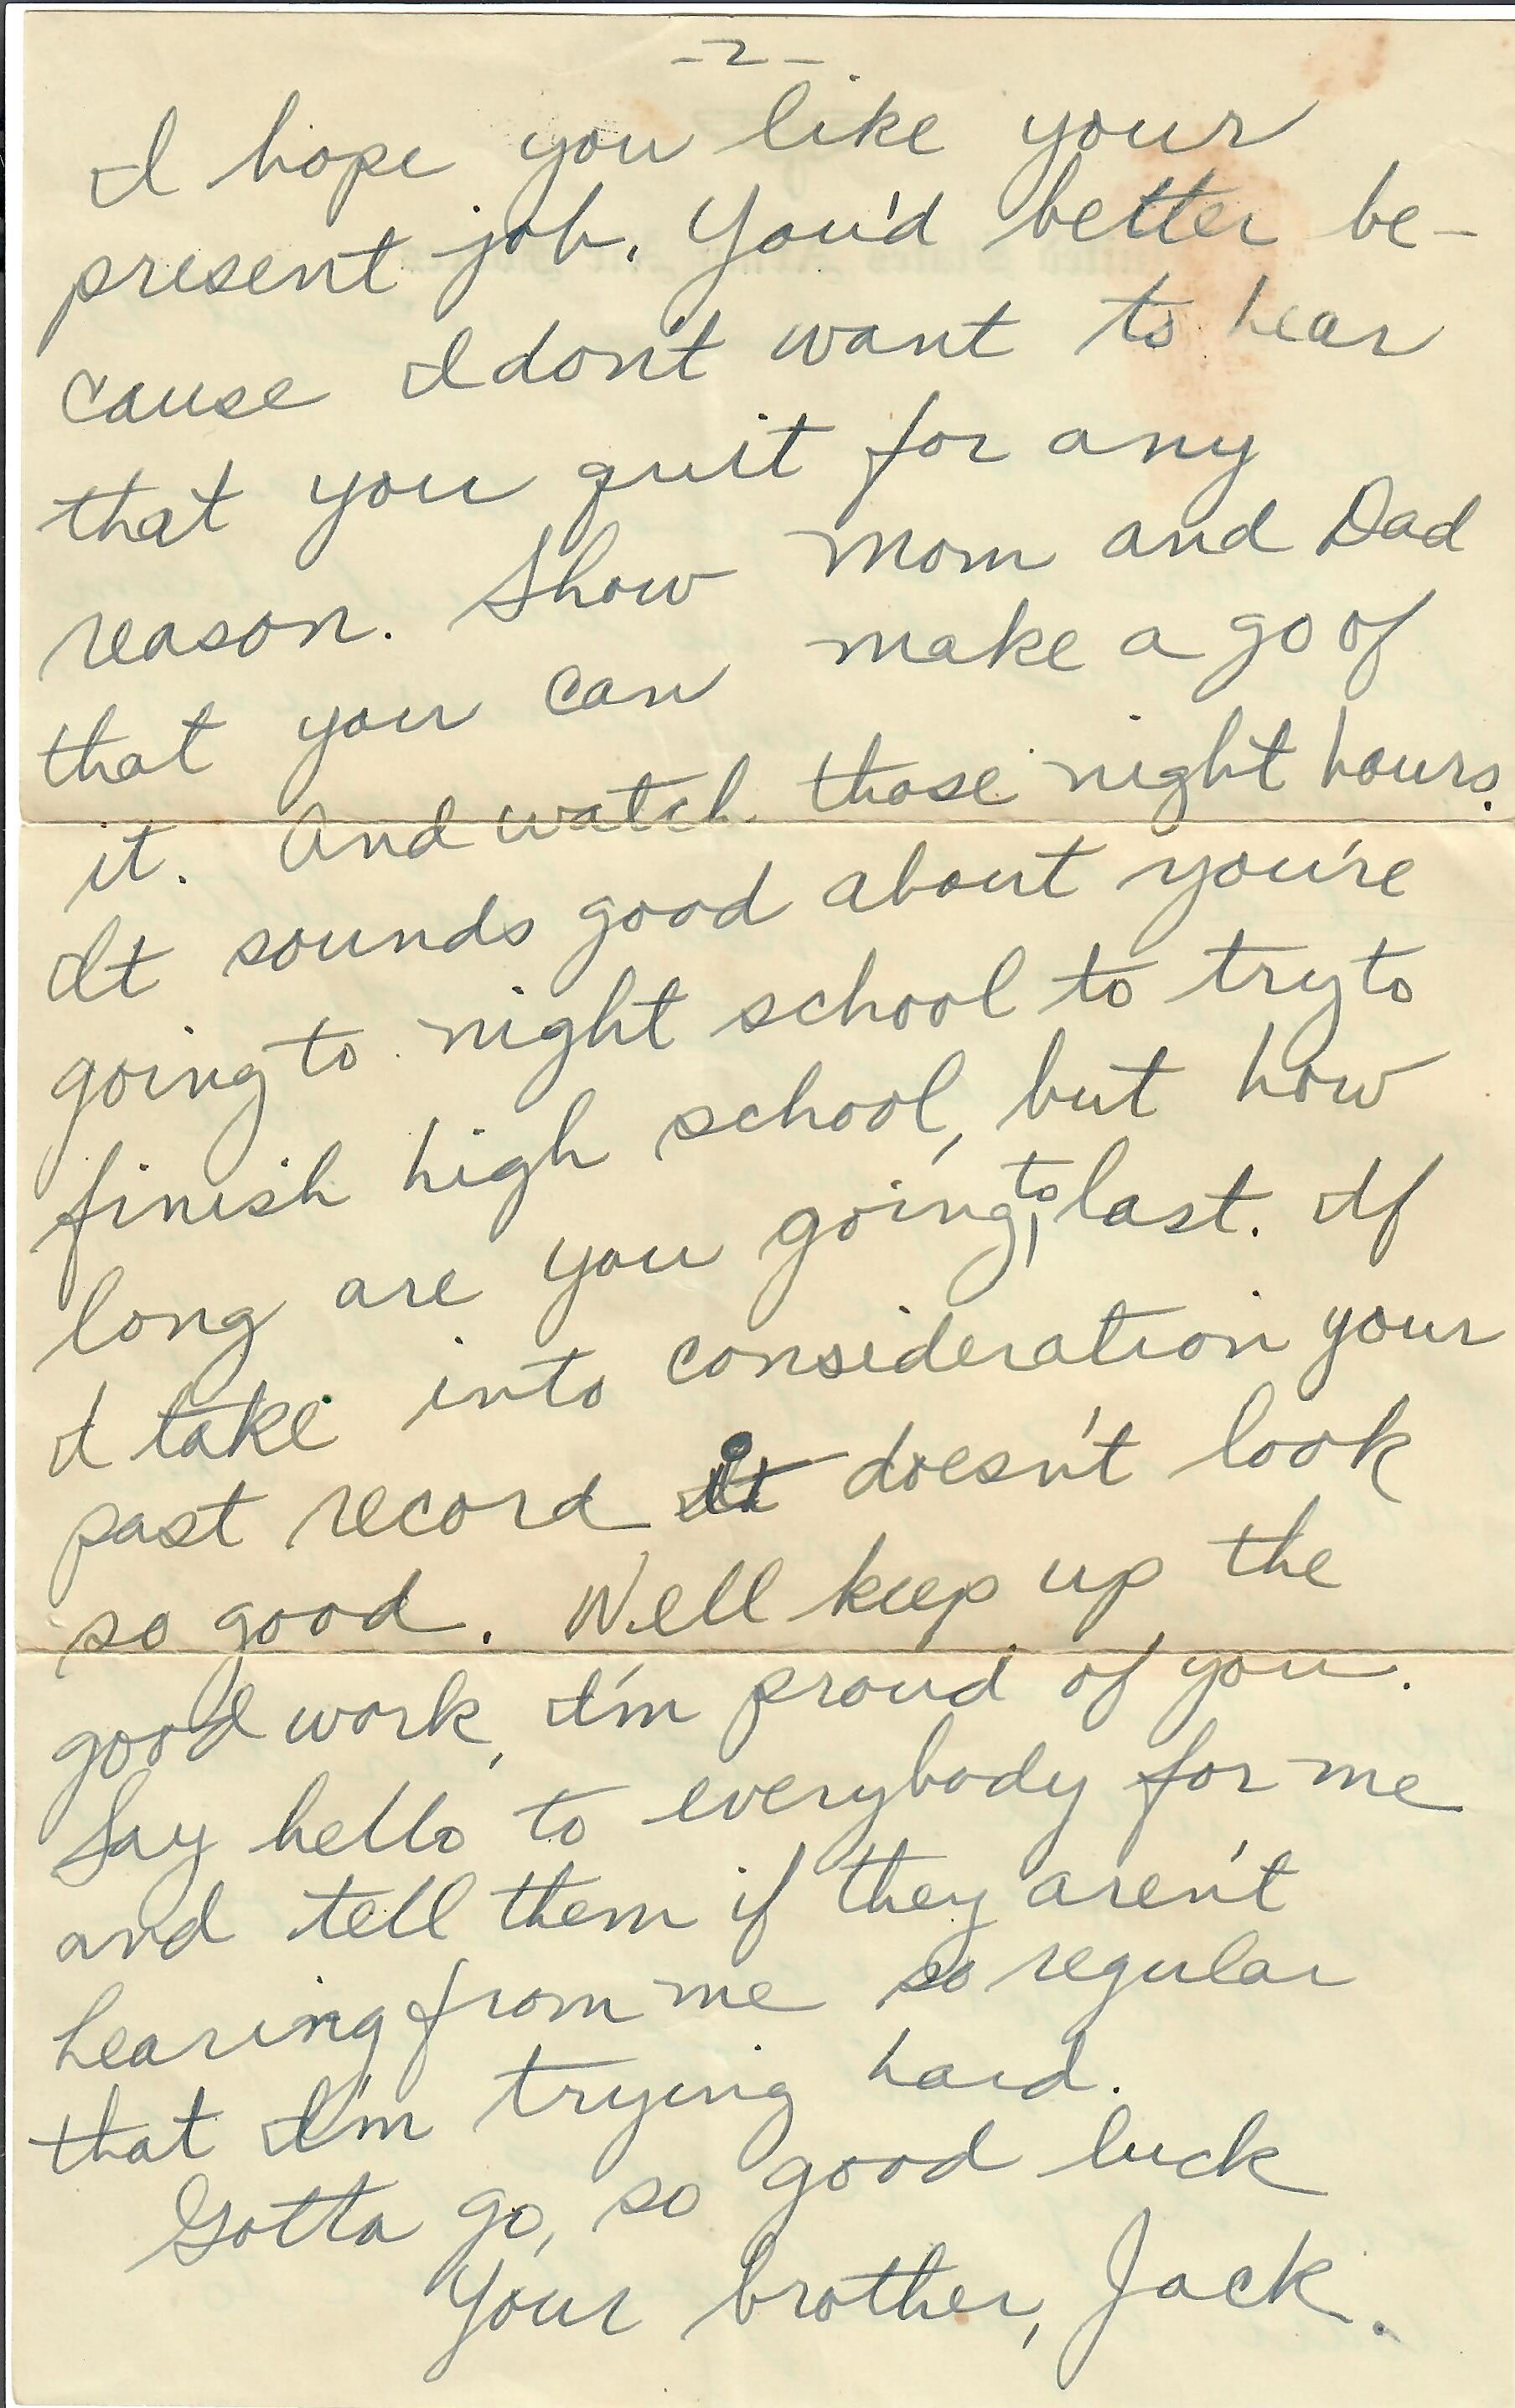 -2-
I hope you like your
present job. You'd better be-
cause I don't want to hear
that you quit for any
reason. Show Mom and Dad
that you can make a go of
it. And watch those night hours.
It sounds good about you're
going to night school to try to
finish high school, but how
long are you going to last. If
I take into consideration your
past record it doesn't look
so good. Well keep up the
good work, I'm proud of you.
Say hello to everybody for me
and tell them if they aren't
hearing from me so regular
that I'm trying hard.
Gotta go, so good luck
Your brother, Jack.